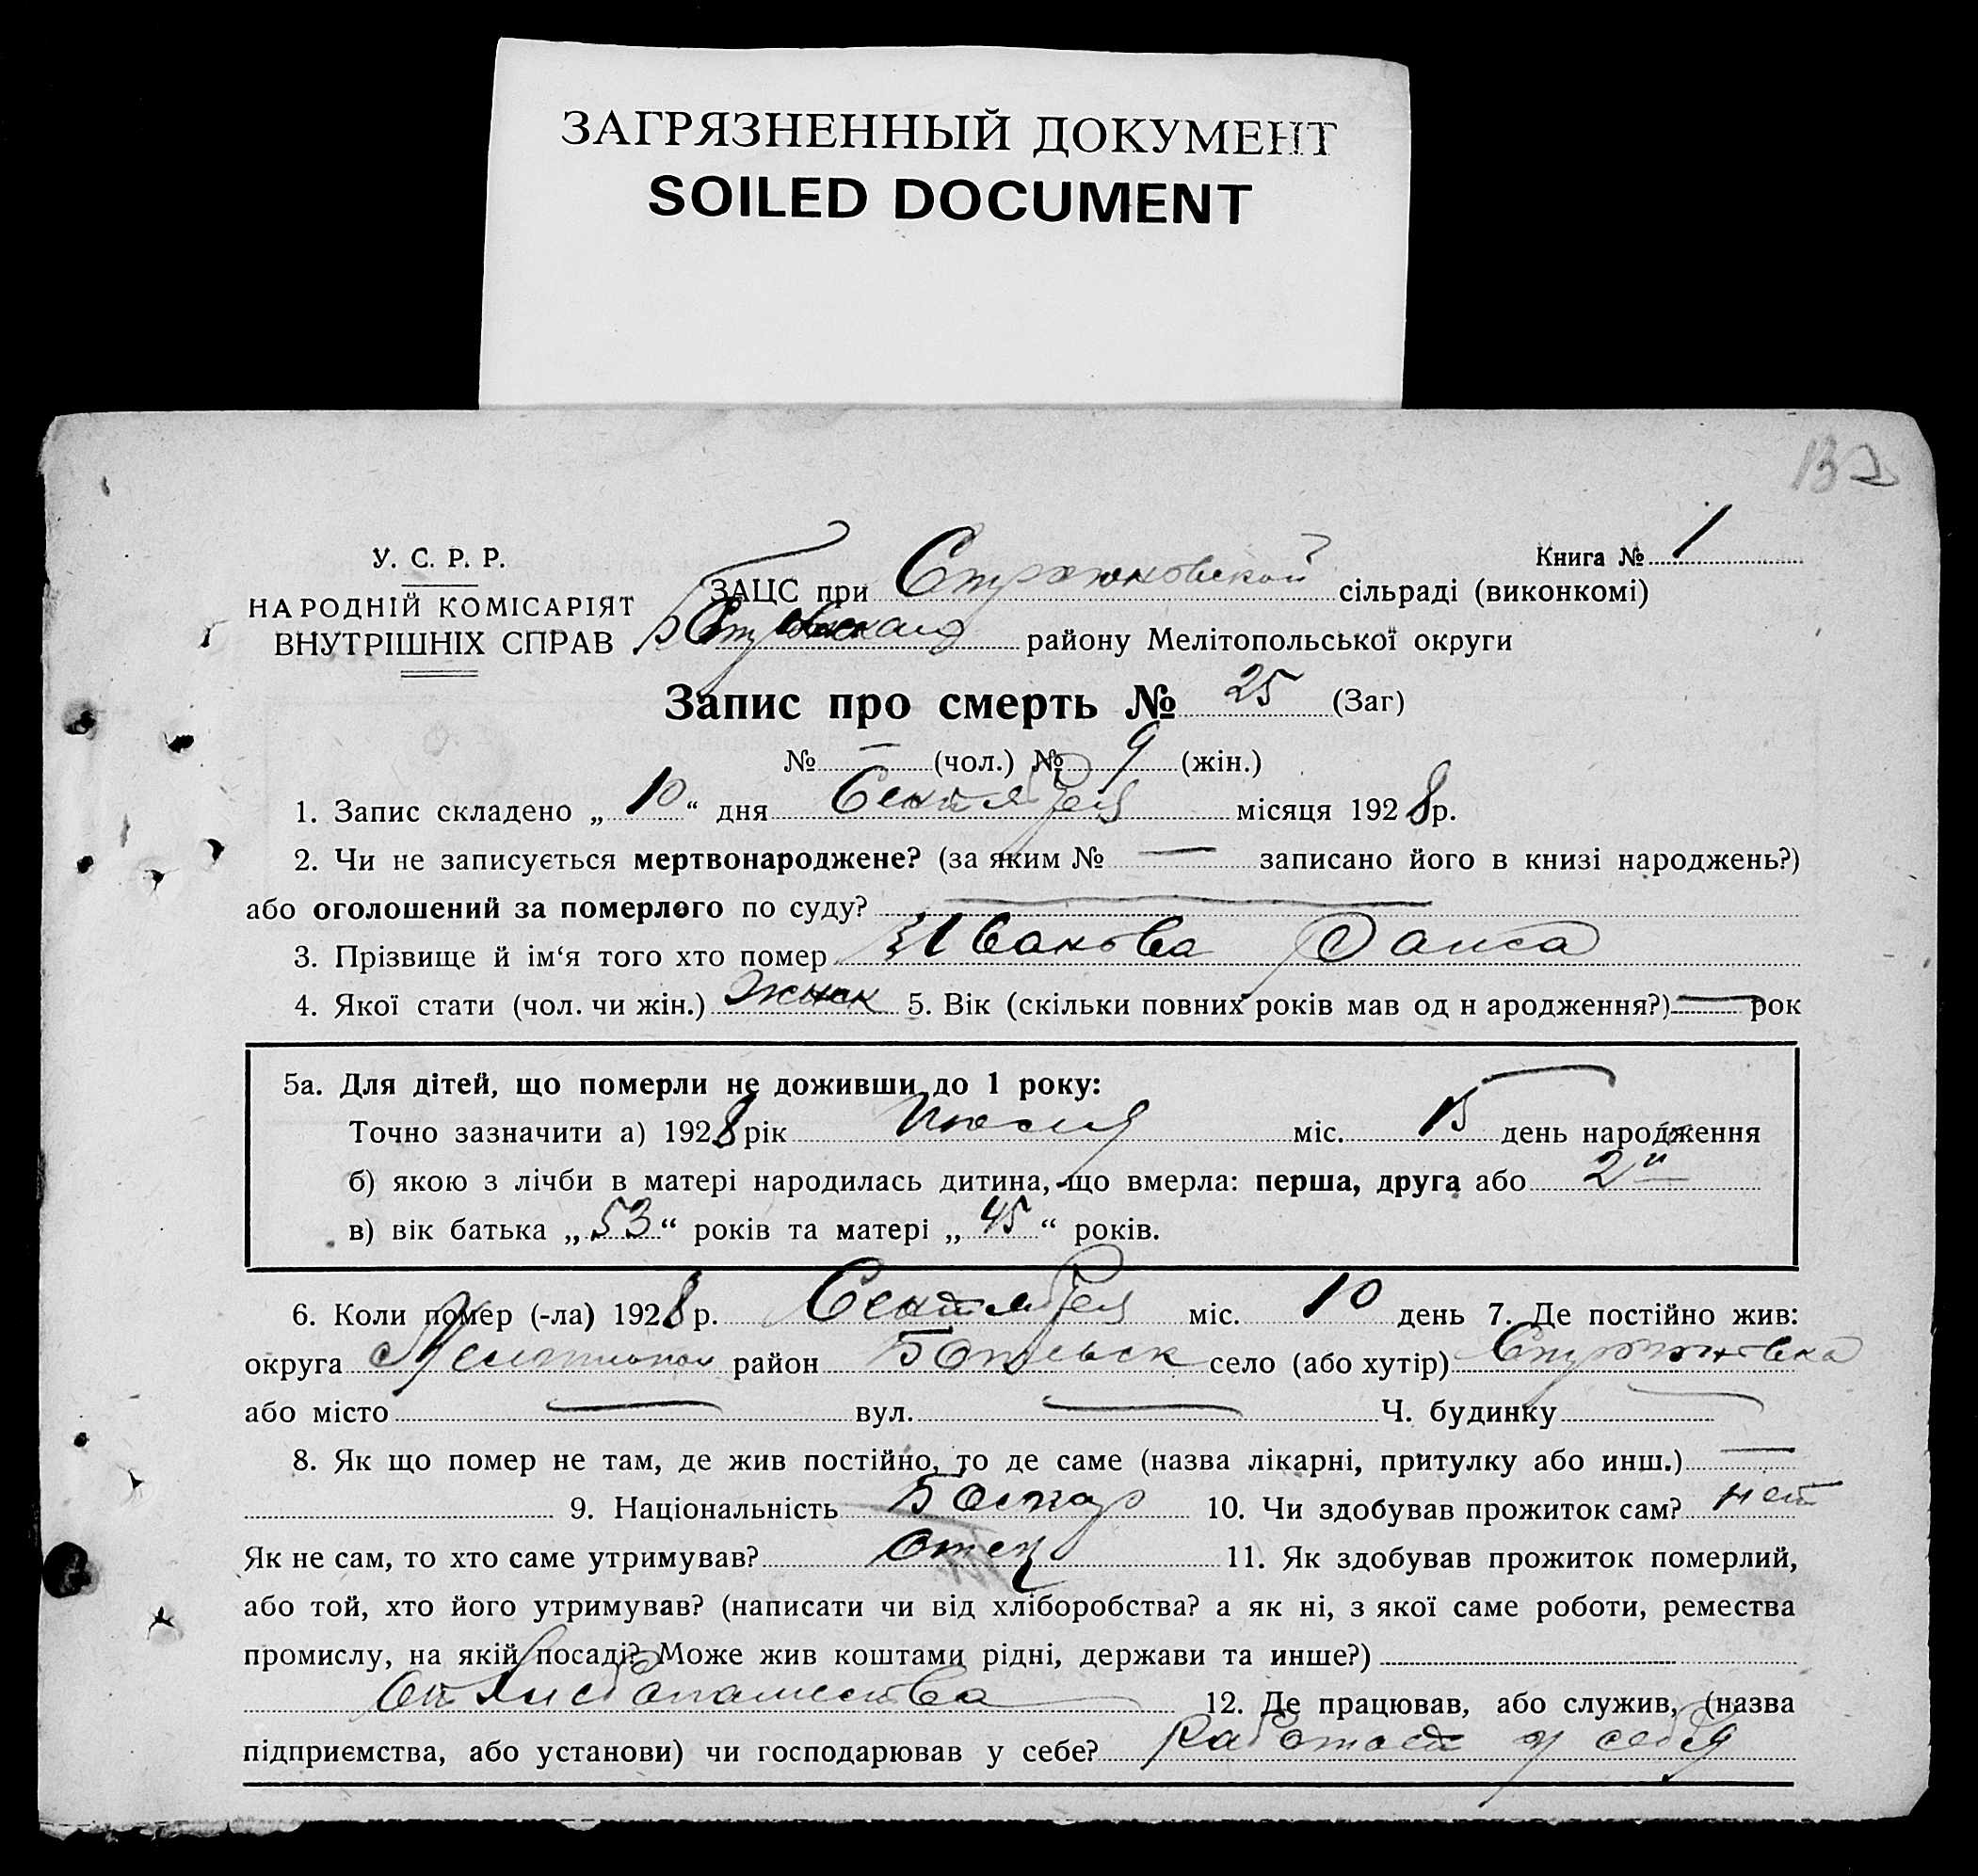 ЗАГРЯЗНЕННЫЙ ДОКУМЕНТ
SOILED DOCUMENT
132
Книга № 1
У. С. Р. Р.
НАРОДНІЙ КОМІСАРІЯТ
ВНУТРІШНІХ СПРАВ
ЗАЦС при сільраді (виконкомі)
району Мелітопольської округи
Запис про смерть № 25 (Заг)
№ — (чол.) № 9 (жін.)
1. Запис складено „ 10 “ дня Сентября місяця 1928 р.
2. Чи не записується мертвонароджене? (за яким № — записано його в книзі народжень?)
або оголошений за померлого по суду? —
3. Прізвище й ім‘я того хто помер Иванова
4. Якої стати (чол. чи жін.) 5. Вік (скільки повних років мав од н ародження?) — рок
5а. Для дітей, що померли не доживши до 1 року:
Точно зазначити а) 1928 рік міс. 15 день народження
б) якою з лічби в матері народилась дитина, що вмерла: перша, друга або 2
в) вік батька „ 53 “ років та матері „ 45 “ років.
6. Коли помер (-ла) 1928 р. Сентября міс. 10 день 7. Де постійно жив:
округа район село (або хутір)
або місто — вул. — Ч. будинку —
8. Як що помер не там, де жив постійно, то де саме (назва лікарні, притулку або инш.) —
9. Національність 10. Чи здобував прожиток сам? нет
Як не сам, то хто саме утримував? отец 11. Як здобував прожиток померлий,
або той, хто його утримував? (написати чи від хліборобства? а як ні, з якої саме роботи, ремества
промислу, на якій посаді? Може жив коштами рідні, держави та инше?)
12. Де працював, або служив, (назва
підприємства, або установи) чи господарював у себе? работает у себя